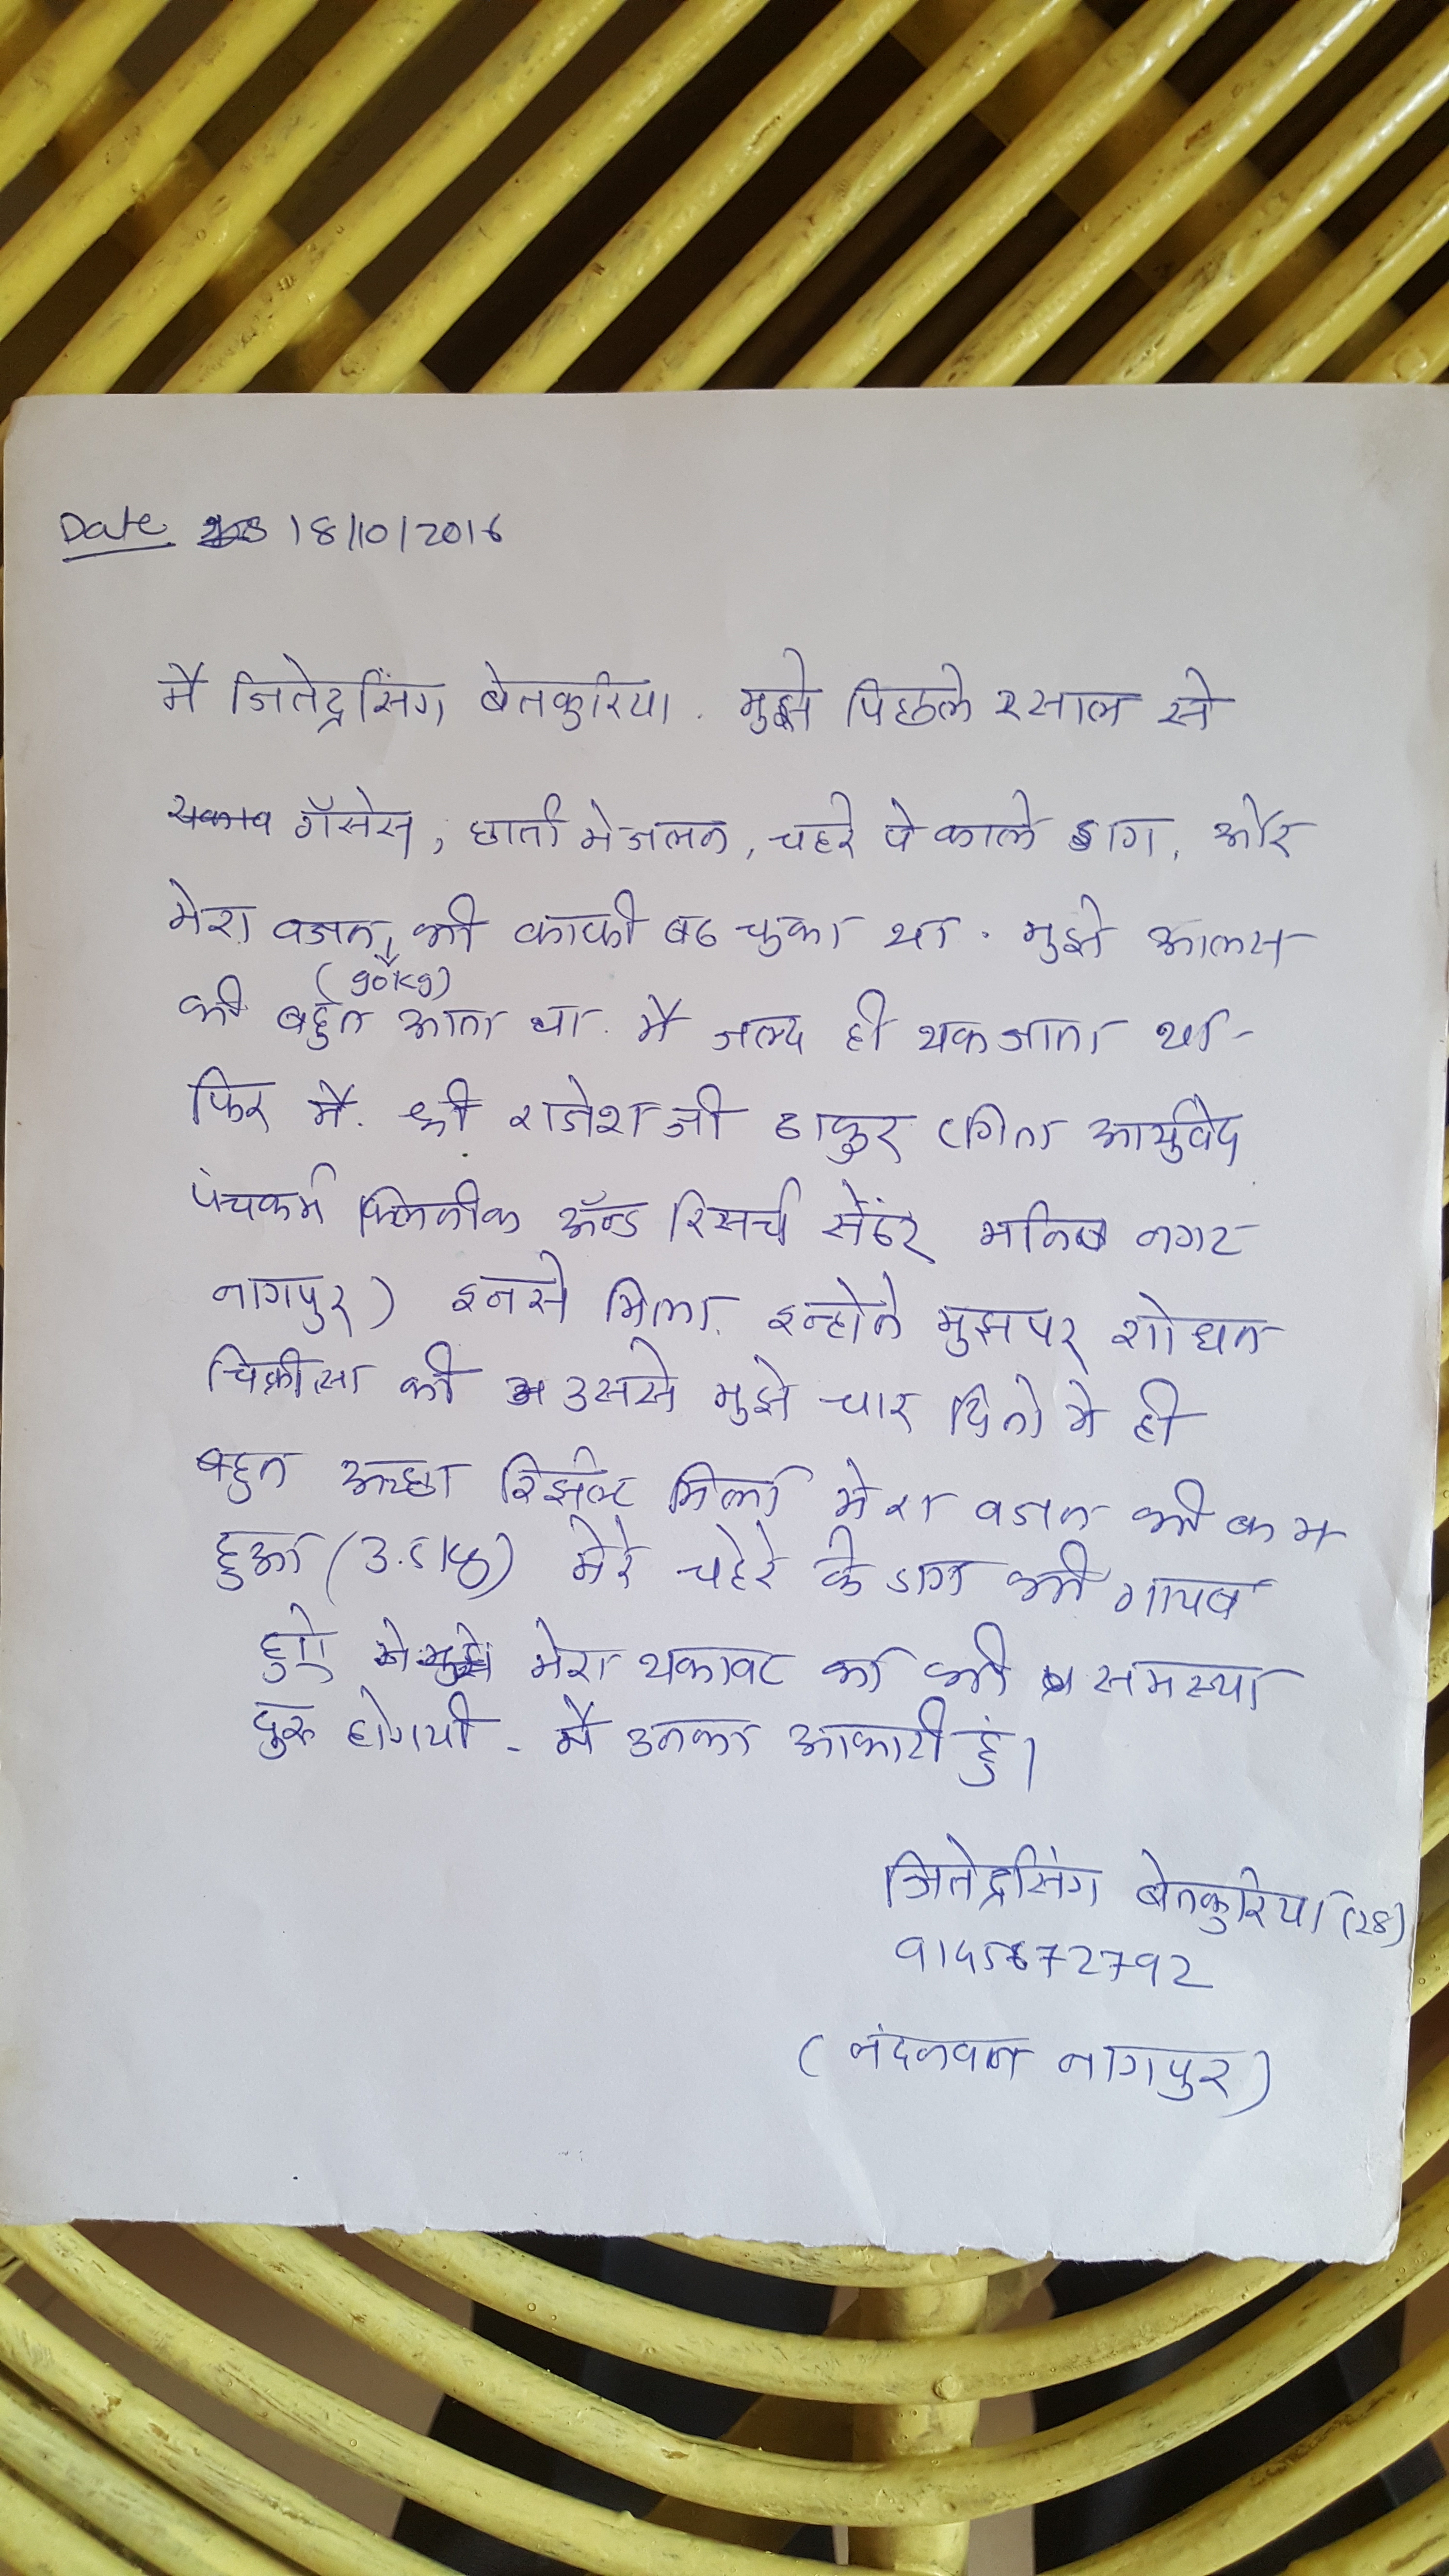 Date 18/10/2016
मै जितेद्रसिंग बेनकुरिया. मुझे पिछले २ साल से
गॅसेस, छाती मे जलन, चहरे पे काले डाग, और
मेरा वजन भी काफी बढ चुका था. मुझे आलस
(90kg)
भी बहुत आता था. मै जल्द ही थक जाता था.
फिर मै. श्री राजेश जी ठाकुर (गिता आर्युवेद
पंचकर्म क्लिनीक अॅन्ड रिसर्च सेंटर मनिष नगर
नागपुर) इनसे मिला. इन्होने मुझपर शोधन
चिक्रीत्सा की उससे मुझे चार दिनो मे ही
बहुत अच्छा रिझल्ट मिला मेरा वजन भी कम
हुआ (3.5kg) मेरे चहेरे के डाग भी गायब
हुऐ मेरा थकावट का भी समस्या
दुरु होगयी. मै उनका आभारी हुं।
जितेद्रसिंग बेनकुरिया (28)
9145672792
(नंदनवन नागपुर)